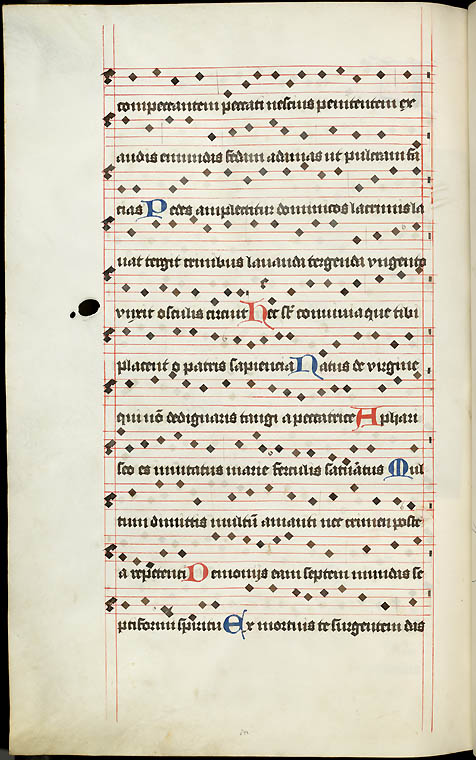 compeccantem peccati nescius penitentem ex
audis emundas fedam adamas ut pulcram fa
cias Pedes amplectitur dominicos lacrimis la
uat tergit crinibus lauanda tergenda vngento
vnxit osculis circuit Hec st conuiuia que tibi
placent o patris sapiencia Natus de virgine
qui nō dedignaris tangi a peccatrice A phari
seo es inuitatus marie ferculis saturatus Mul
tum dimittis multū amanti nec crimen poste
a repetenti Demonijs eam septem mundas se
ptiformi spiritu Ex mortuis te surgentem das